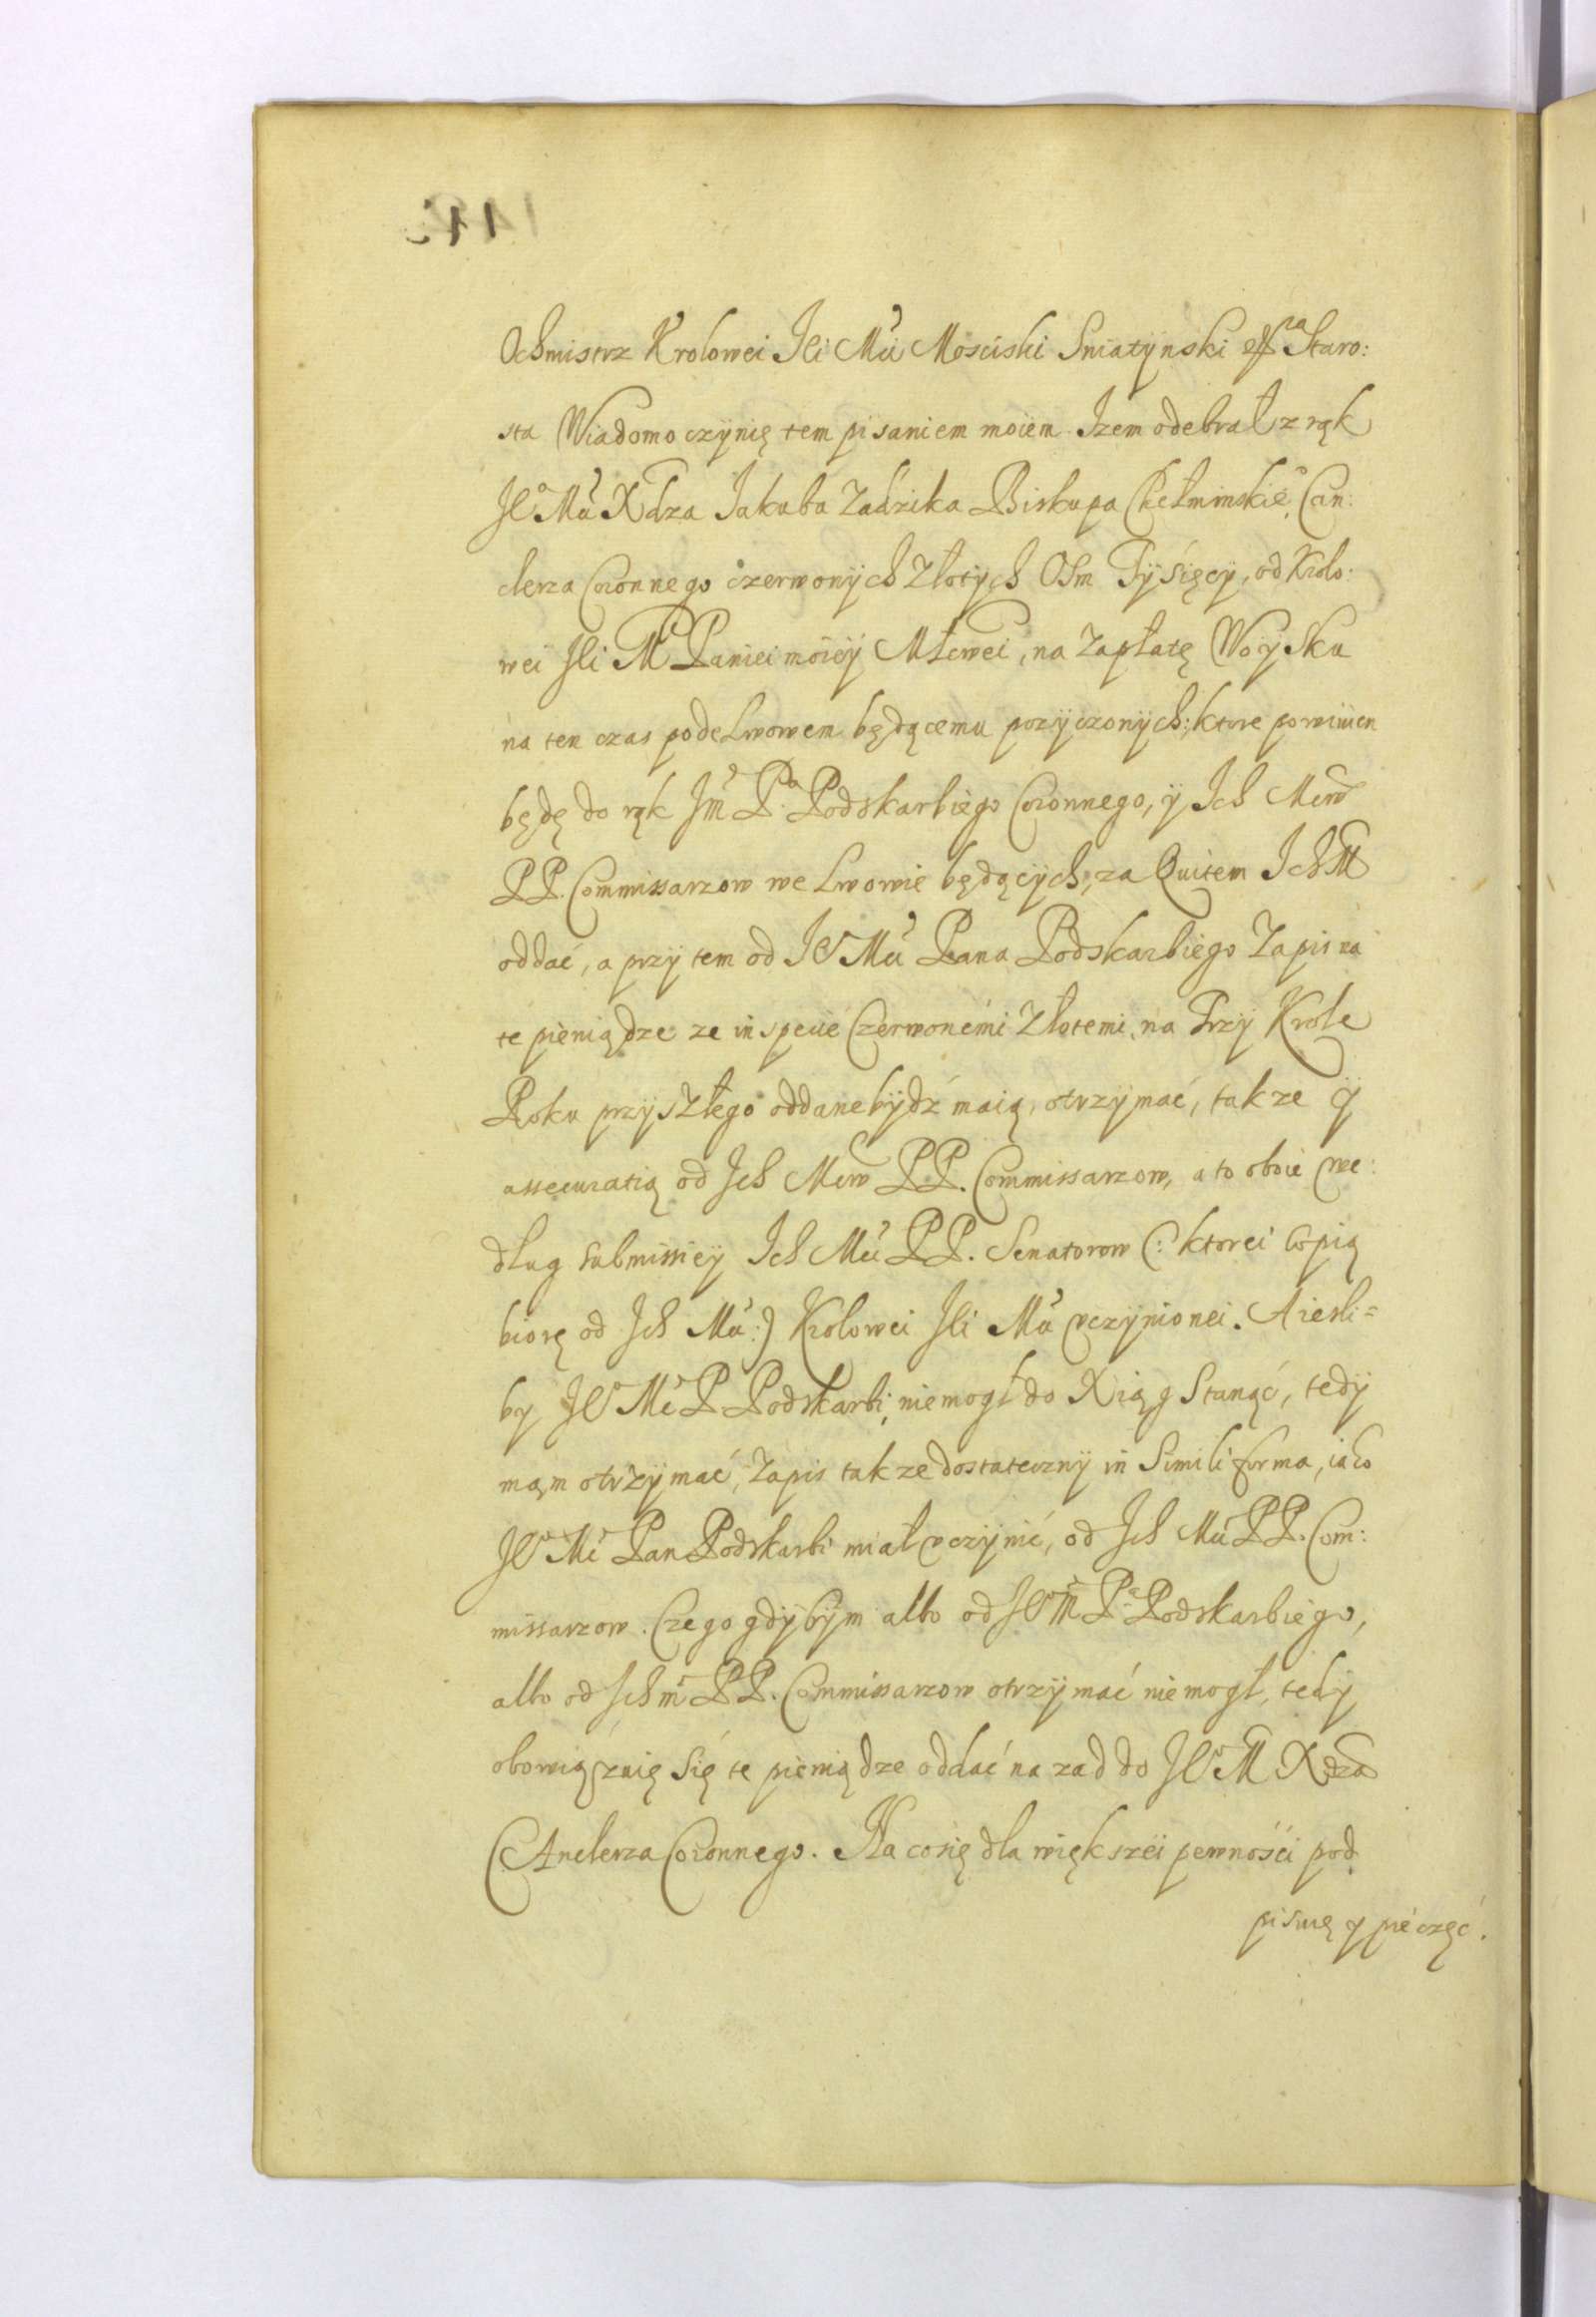 Ochmistrz Krolowei Jei Mći Mosciski Sniatynski etc Staro:
sta Wiadomo czynię tem pisaniem moiem Izem odebrał z rąk
Je° Mći Xdza Jakuba Zadzika Biskupa Chełminskie° Can:
clerza Coronnego czerwonych Złotych Osm Tysięcy, od Krolo:
wei Jei M Paniei moiey Młcwei, na Zapłatę Woysku
na ten czas pode Lwowem będącemu pozyczonych: ktore powinien
będę do rąk Jm Pa Podskarbiego Coronnego, y Ich Mciw
PP. Commissarzow we Lwowie będących, za Quitem Ich M
oddać, a przy tem od Je° Mći Pana Podskarbiego Zapis na
te pieniądze ze in specie Czerwonemi Złotemi, na Trzy Krole
Roku przyszłego oddane bydź maią, otrzymać, takze y
assecuratią od Ich Mciw PP. Commissarzow, a to oboie we:
dług submissiey Ich Mći PP. Senatorow (: ktorei Copią
biorę od Ich Mći :) Krolowei Jei Mći vczynionei. A iesli=
by Je° Mć P Podskarbi, niemogł do Xiąg Stanąć, tedy
mam otrzymać, Zapis takze dostateczny in Simili forma, iako
Je° Mć Pan Podskarbi miał vczynić, od Ich Mći PP. Com:
missarzow. Czego gdybym albo od Je° M Pa Podskarbiego,
albo od Ich m PP. Commissarzow otrzymać niemogł, tedy
obowiązuię Się te pieniądze oddać na zad do Je° M Xdza
CAnclerza Coronnego. Na co się dla większei pewności pod
pisuię y pieczęć.